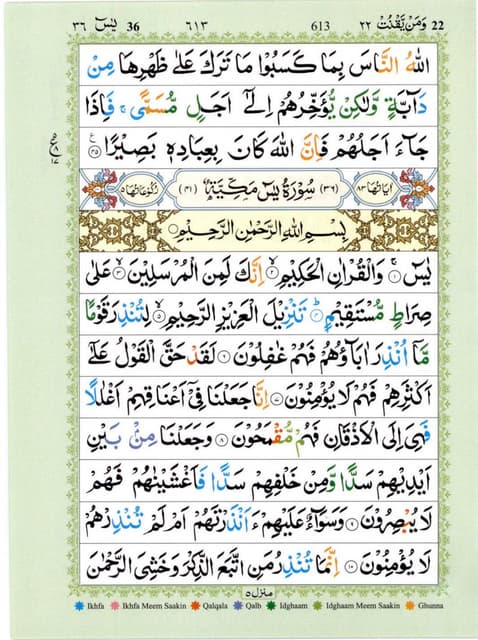 وَمَنْ يَّقْنُتْ ٢٢ 22 613 ٦١٣ يٰسٓ ٣٦ 36
اللّٰهُ النَّاسَ بِمَا كَسَبُوْا مَا تَرَكَ عَلٰى ظَهْرِهَا مِنْ
دَآبَّةٍ وَّلٰكِنْ يُّؤَخِّرُهُمْ اِلٰٓى اَجَلٍ مُّسَمًّى ۚ فَاِذَا
جَآءَ اَجَلُهُمْ فَاِنَّ اللّٰهَ كَانَ بِعِبَادِهٖ بَصِيْرًا ۝٤٥
اٰيَاتُهَا ٨٣ (٣٦) سُوْرَةُ يٰسٓ مَكِّيَّةٌ (٤١) رُكُوْعَاتُهَا ٥
بِسْمِ اللّٰهِ الرَّحْمٰنِ الرَّحِيْمِ
يٰسٓ ۝١ وَالْقُرْاٰنِ الْحَكِيْمِ ۝٢ اِنَّكَ لَمِنَ الْمُرْسَلِيْنَ ۝٣ عَلٰى
صِرَاطٍ مُّسْتَقِيْمٍ ۝٤ تَنْزِيْلَ الْعَزِيْزِ الرَّحِيْمِ ۝٥ لِتُنْذِرَ قَوْمًا
مَّآ اُنْذِرَ اٰبَآؤُهُمْ فَهُمْ غٰفِلُوْنَ ۝٦ لَقَدْ حَقَّ الْقَوْلُ عَلٰٓى
اَكْثَرِهِمْ فَهُمْ لَا يُؤْمِنُوْنَ ۝٧ اِنَّا جَعَلْنَا فِيْٓ اَعْنَاقِهِمْ اَغْلٰلًا
فَهِيَ اِلَى الْاَذْقَانِ فَهُمْ مُّقْمَحُوْنَ ۝٨ وَجَعَلْنَا مِنْۢ بَيْنِ
اَيْدِيْهِمْ سَدًّا وَّمِنْ خَلْفِهِمْ سَدًّا فَاَغْشَيْنٰهُمْ فَهُمْ
لَا يُبْصِرُوْنَ ۝٩ وَسَوَآءٌ عَلَيْهِمْ ءَاَنْذَرْتَهُمْ اَمْ لَمْ تُنْذِرْهُمْ
لَا يُؤْمِنُوْنَ ۝١٠ اِنَّمَا تُنْذِرُ مَنِ اتَّبَعَ الذِّكْرَ وَخَشِيَ الرَّحْمٰنَ
منزل ٥
Ikhfa Ikhfa Meem Saakin Qalqala Qalb Idghaam Idghaam Meem Saakin Ghunna